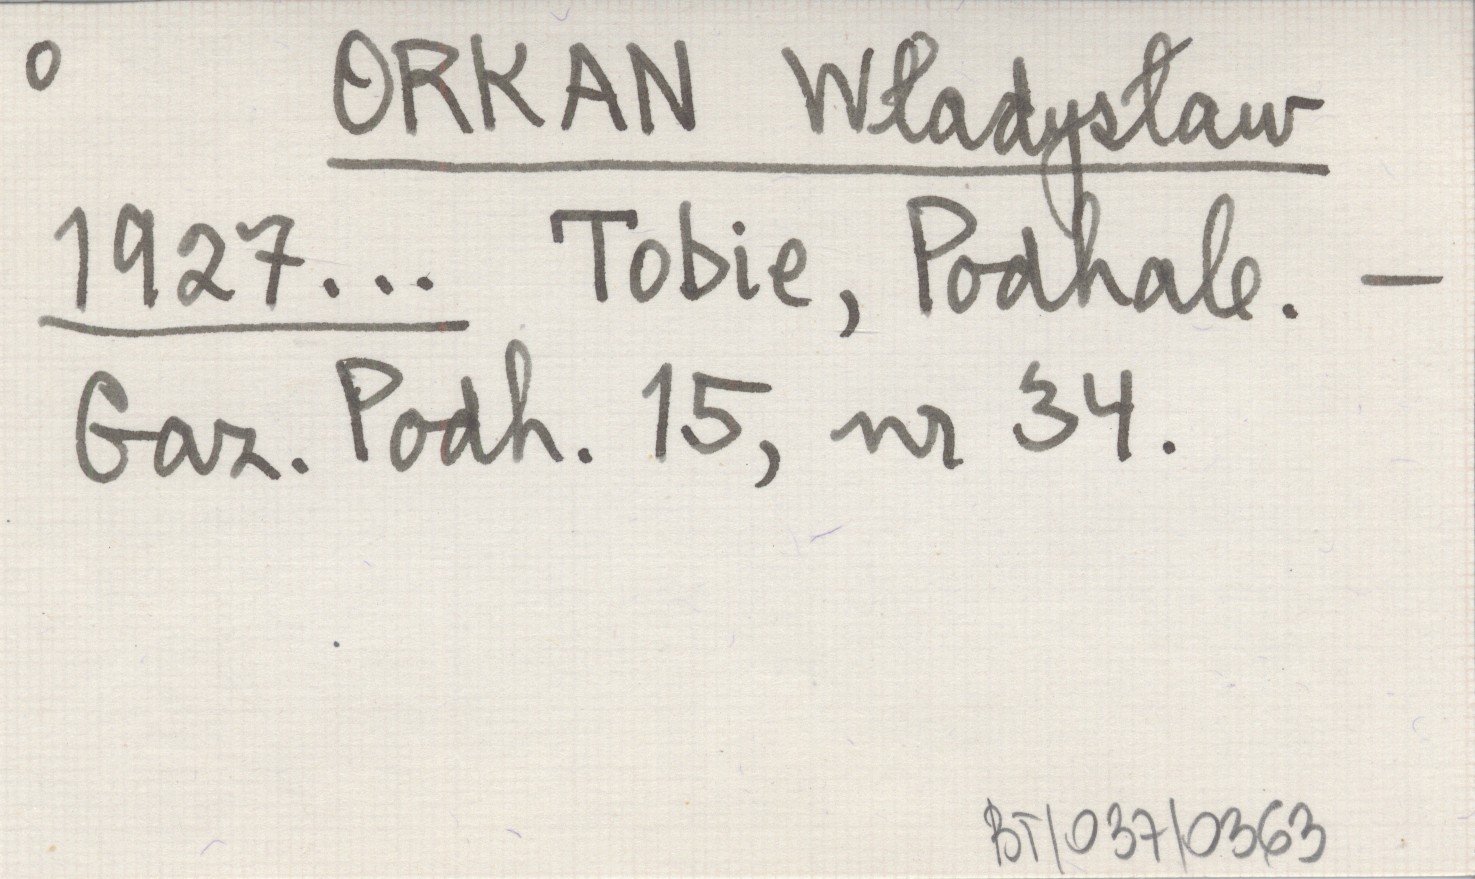 o ORKAN Władysław
1927... Tobie, Podhale. —
Gaz. Podh. 15, nr 34.
BT/037/0363